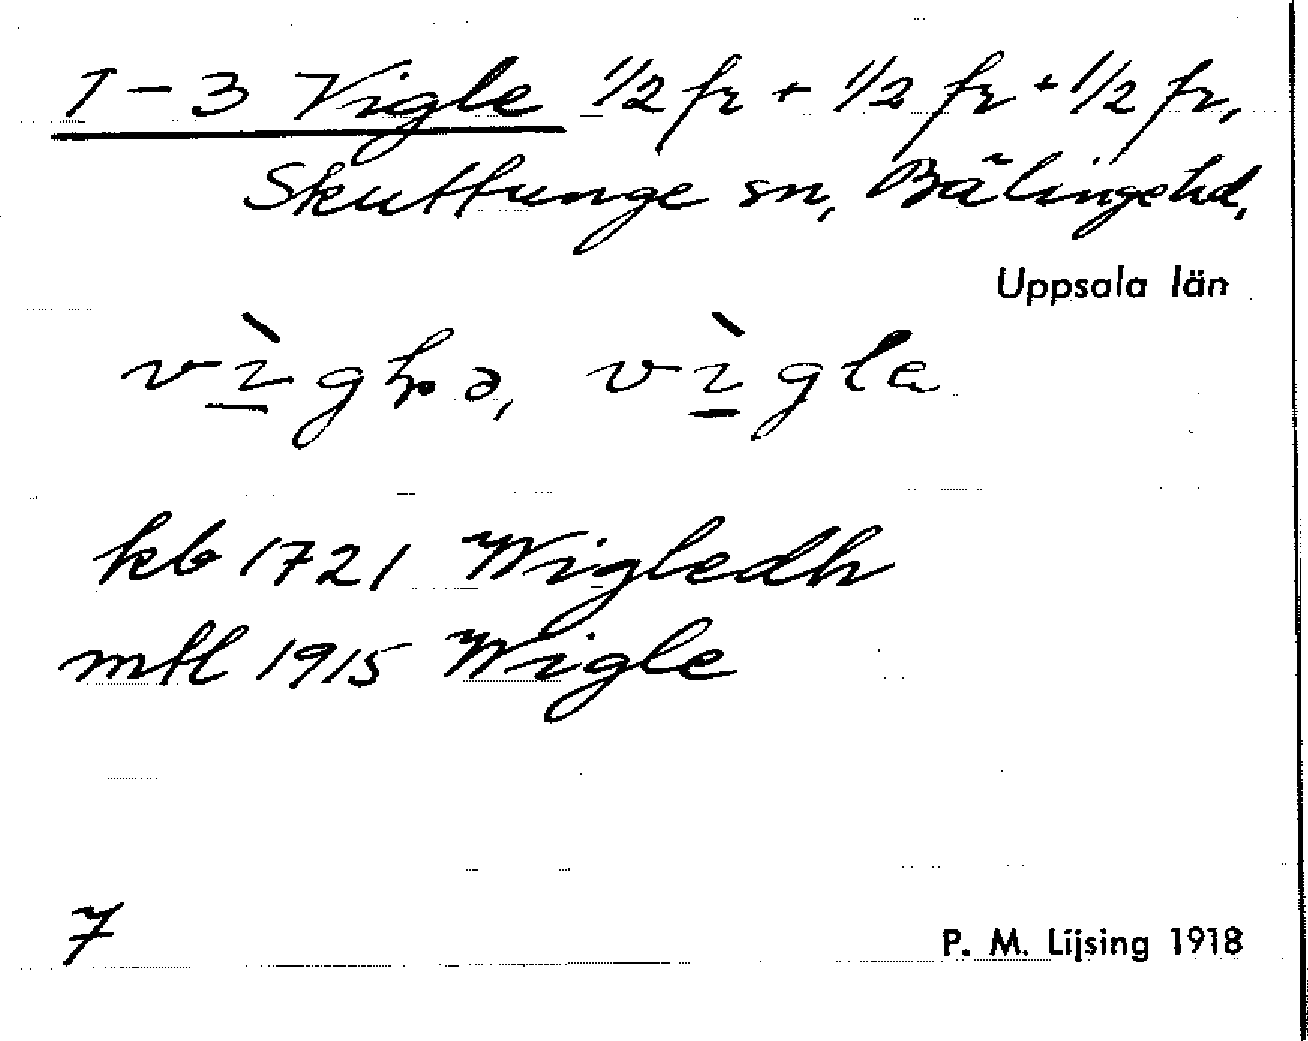 1-3 Vigle 1/2 fr + 1/2 fr + 1/2 fr,
Skuttunge sn, Bälinge hd,
Uppsala län
kb 1721 Wigledh
mtl 1915 Wigle
7
P. M. Lijsing 1918